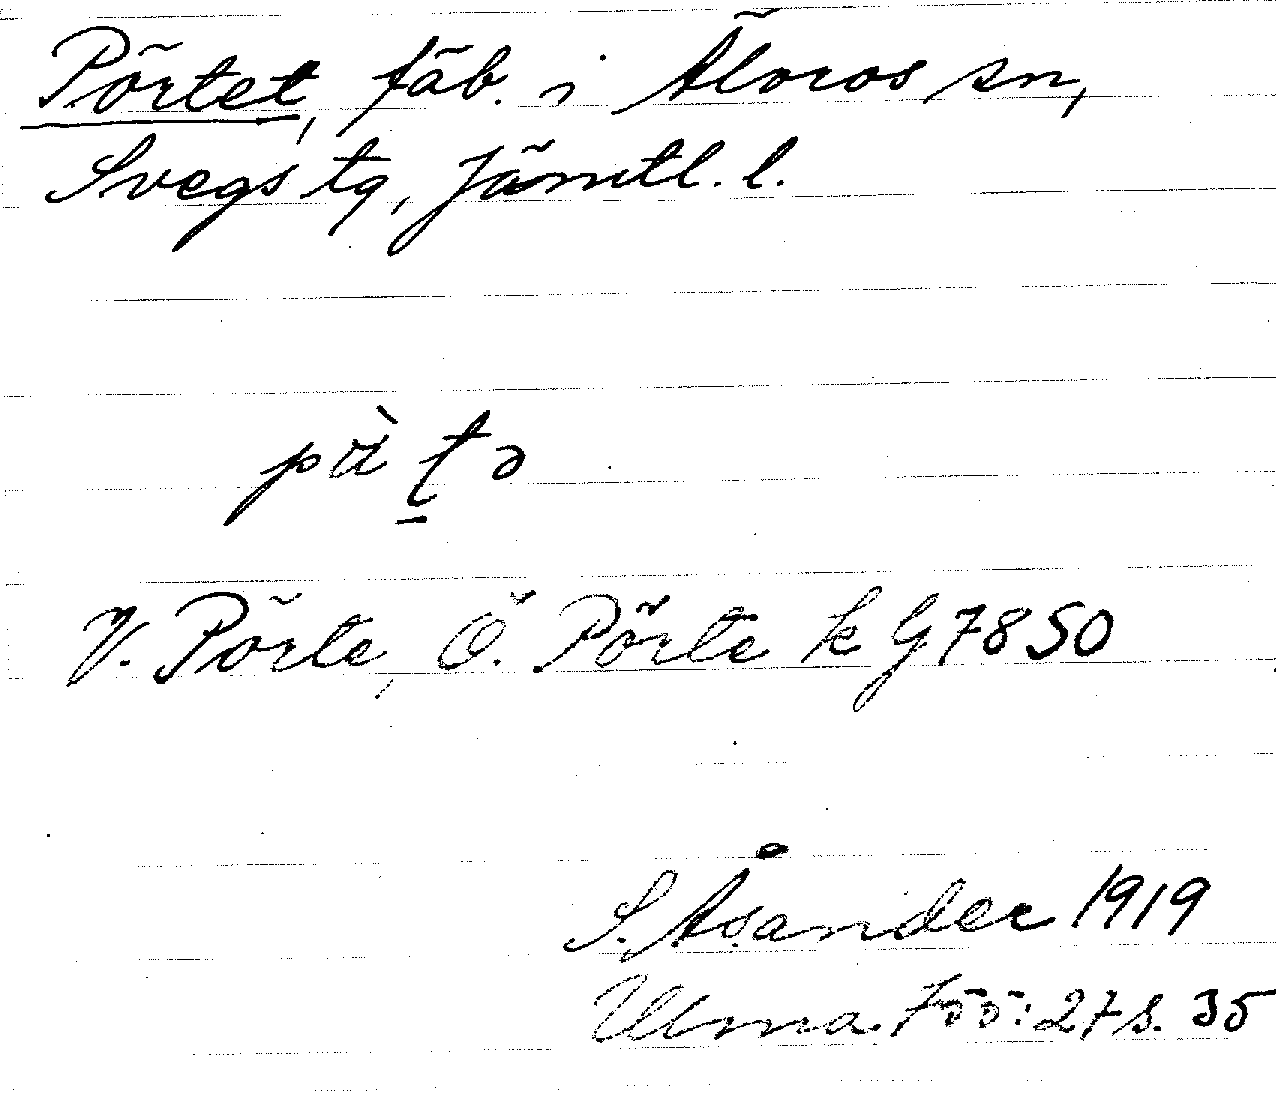 Pörtet, fäb. i Älvros sn,
Svegs tg, Jämtl. l.
V. Pörte, Ö. Pörte k G 7850
S. Åsander 1919
Ulma 700:27 s. 35